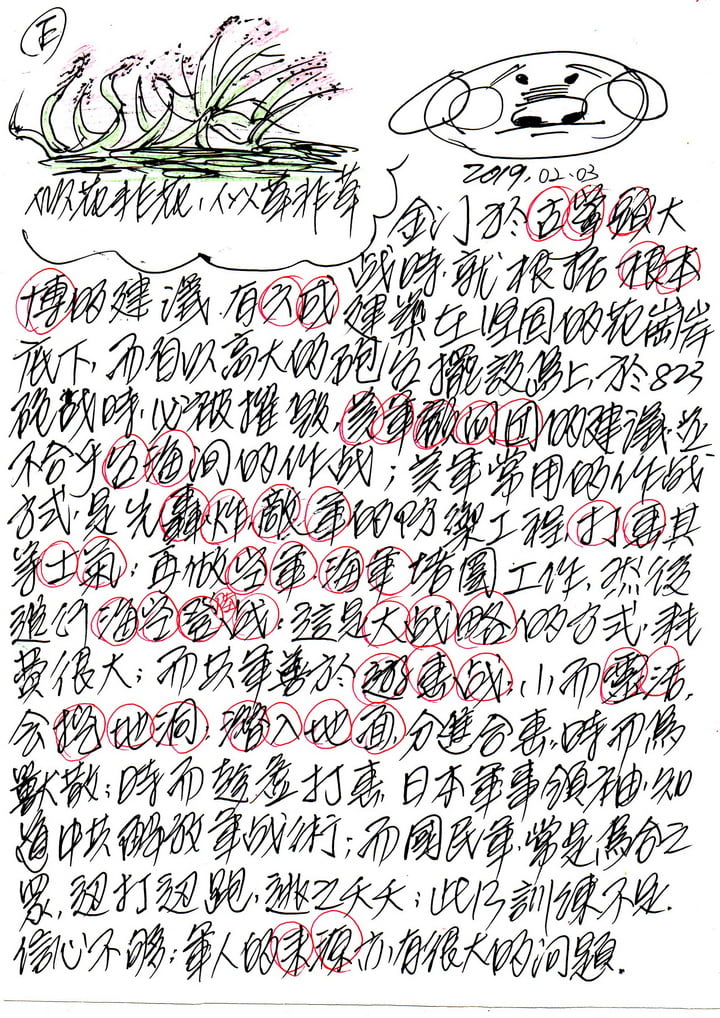 正
2019.02.03
似花非花，似草非草
金门於古寧頭大
战時，就根据根本
博的建議，有六成建築在坚固的花崗岸
底下，而自以高大的砲台擺設島上，於823
砲战時，必被摧毁，美軍顧问团的建議，並
不合乎台海间的作战；美軍常用的作战
方式，是先轟炸敵軍的防禦工程，打击其
士氣；再做空軍、海軍堵圍工作，然後
進行海空登陸战；這是大战略的方式，耗
费很大；而共軍善於遊击战；小而靈活，
会挖地洞；潛入地面，分進合击，時而鳥
獸散；時而趁虚打击，日本軍事領袖，知
道中共解放軍战術；而國民軍，常是烏合之
眾，边打边跑，逃之夭夭；此乃訓練不足，
信心不够；軍人的来源，亦有很大的问題．